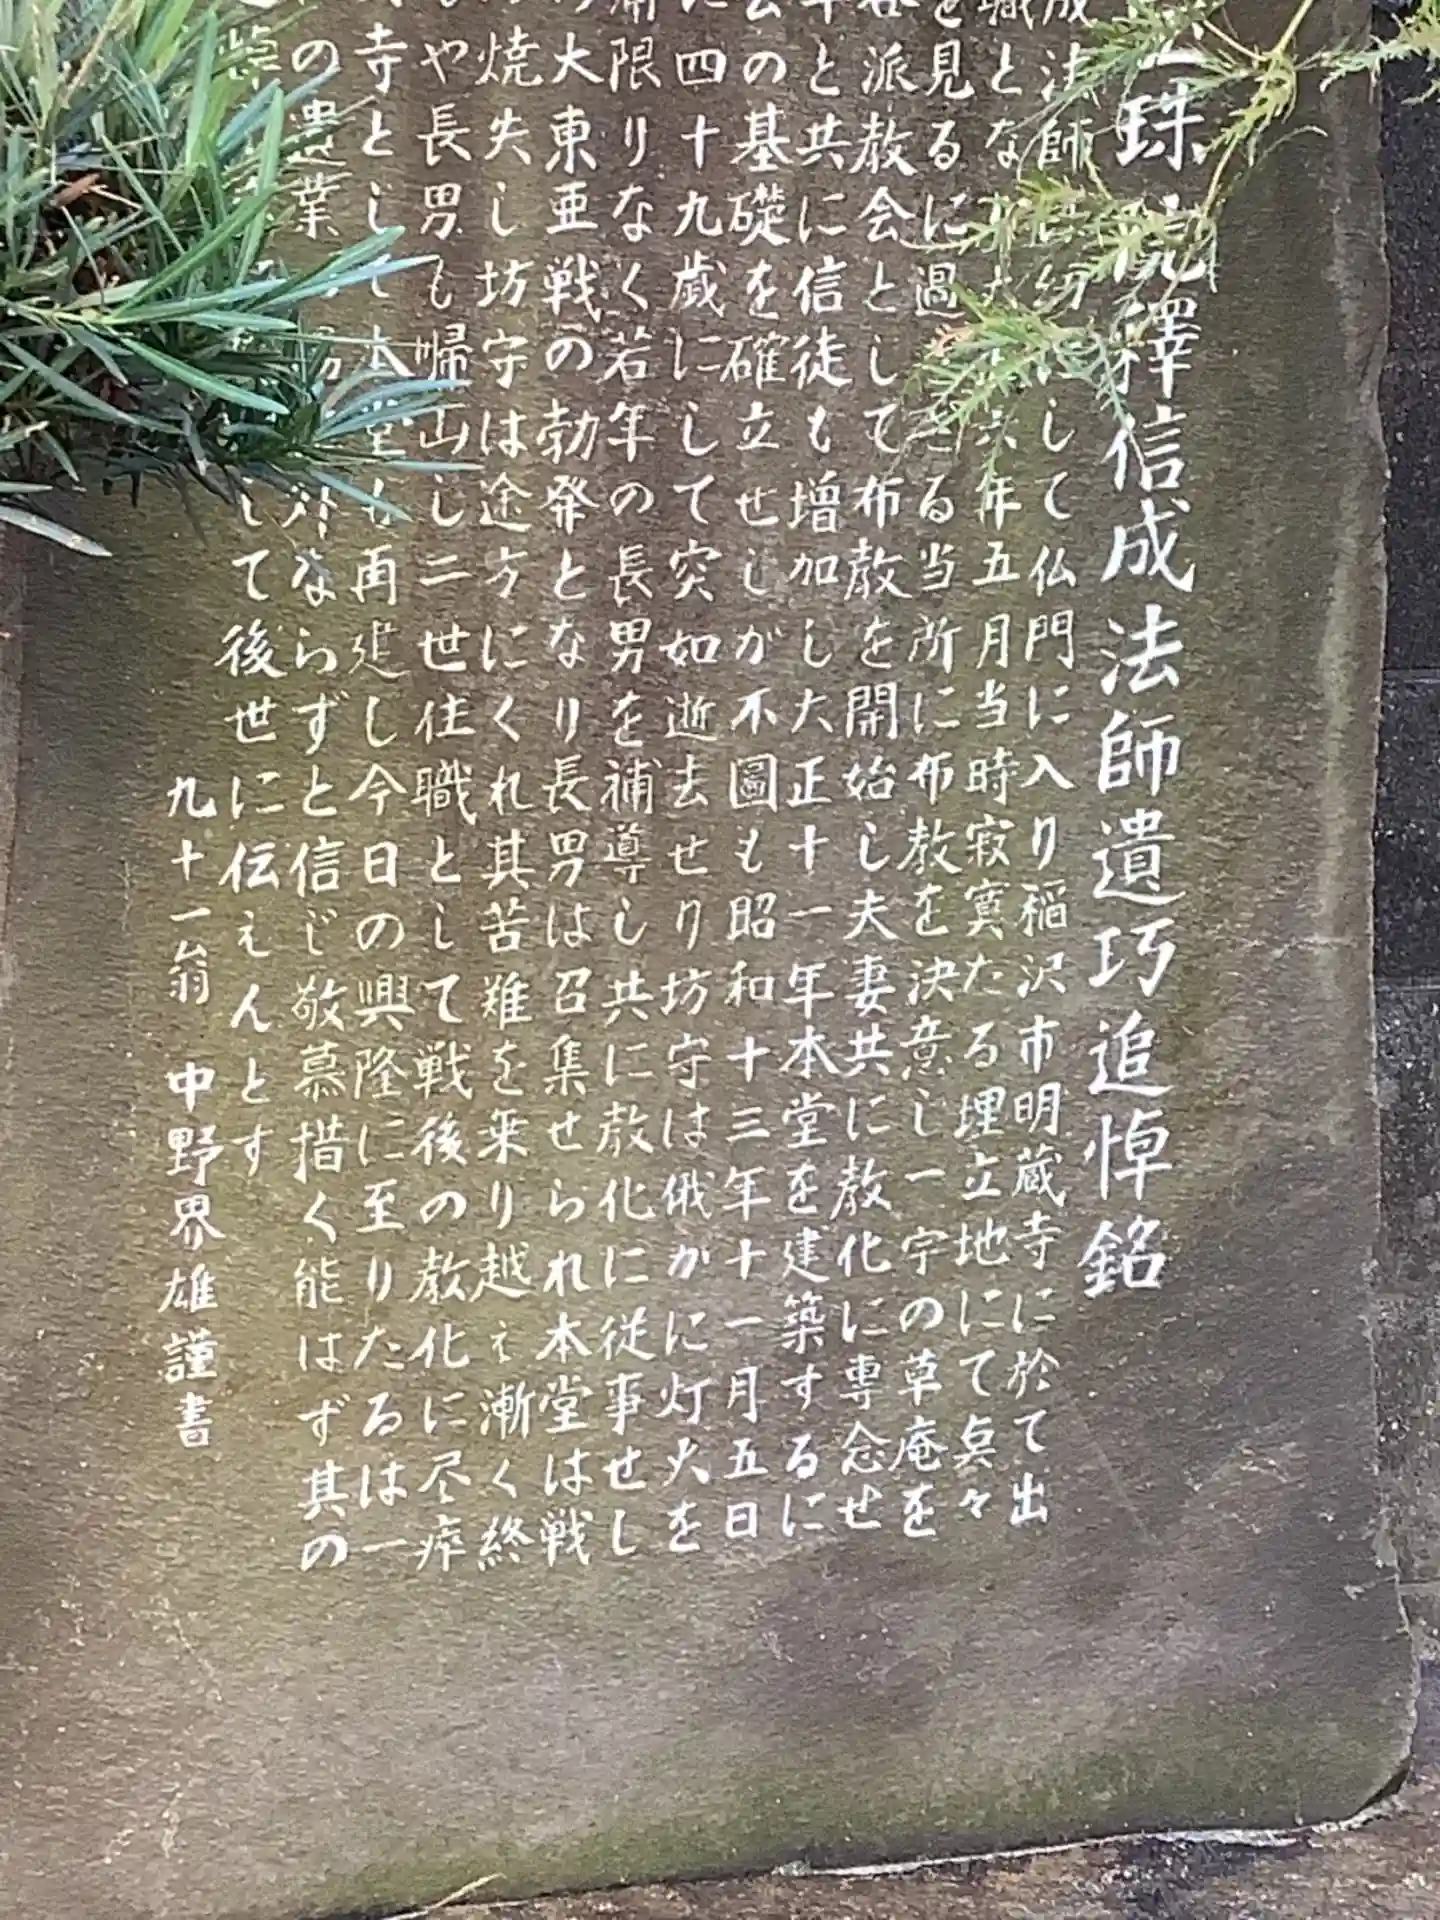 珠院釋信成法師遺巧追悼銘
成法師は幼にして仏門に入り稲沢市明蔵寺に於て出
職となり 六年五月当時寂寞たる埋立地にて点々
を見るに過ぎざる当所に布教を決意し一宇の草庵を
谷派教会として布教を開始し夫妻共に教化に専念せ
年と共に信徒も増加し大正十一年本堂を建築するに
の基礎を確立せしが不圖も昭和十三年十一月五日
に四十九歳にして突如逝去せり坊守は俄かに灯火を
限りなく若年の長男を補導し共に教化に従事せし
大東亜戦の勃発となり長男は召集せられ本堂は戦
焼失し坊守は途方にくれ其苦難を乗り越え漸く終
や長男も帰山し二世住職として戦後の教化に尽瘁
寺として本堂も再建し今日の興隆に至りたるは一
の遺業 ならずと信じ敬慕措く能はず其の
して後世に伝えんとす
九十一翁 中野界雄謹書